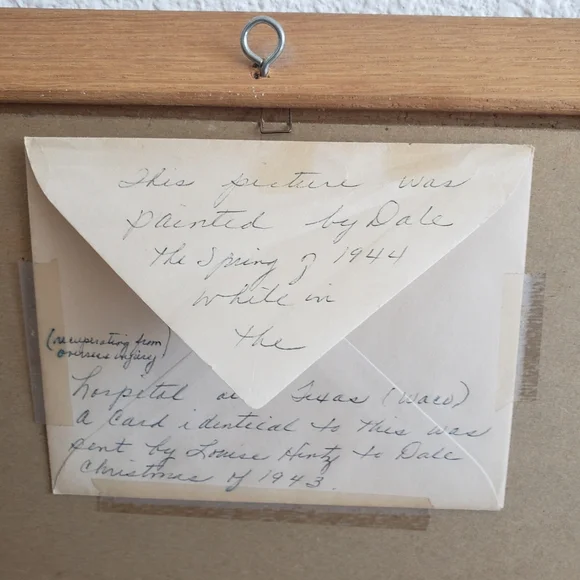 This picture was
painted by Dale
the Spring of 1944
while in
the
(recuperating from
overseas injury)
hospital Texas (Waco)
a card identical to this was
sent by Louise Hintz to Dale
Christmas of 1943.